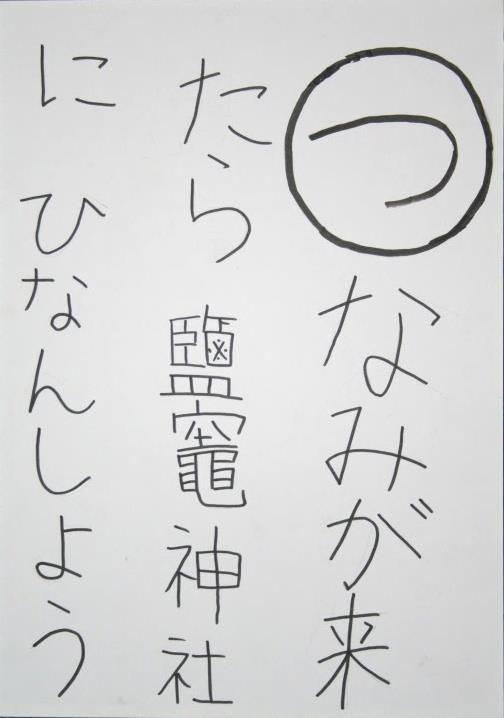 つなみが来
たら鹽竈神社
にひなんしよう